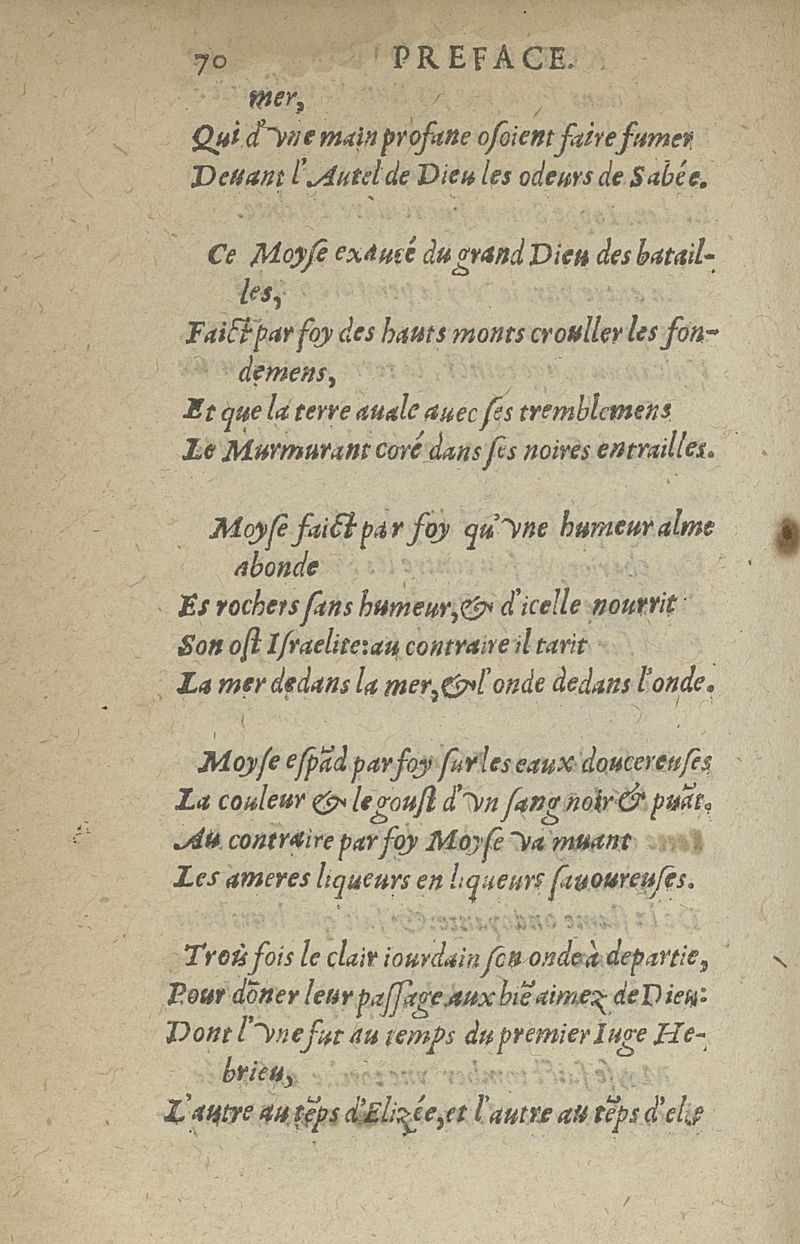 70 PREFACE.
mer,
Qui d'vne main profane oſoient faire fumer
Deuant l'Autel de Dieu les odeurs de Sabée.
Ce Moyſe exaucé du grand Dieu des batail-
les,
Faict par foy des hauts monts crouller les fon-
demens,
Et que la terre auale auec ſes tremblemens
Le Murmurant coré dans ſes noires entrailles.
Moyſe faict par foy qu'vne humeur alme
abonde
Es rochers ſans humeur, & d'icelle nourrit
Son oſt Iſraelite: au contraire il tarit
La mer dedans la mer, & l'onde dedans l'onde.
Moyſe eſpãd par foy ſur les eaux doucereuſes
La couleur & le gouſt d'vn ſang noir & puãt.
Au contraire par foy Moyſe va muant
Les ameres liqueurs en liqueurs ſauoureuſes.
Trois fois le clair iourdain ſon onde à departie,
Pour dõner leur paſſage aux biẽ aimez de Dieu:
Dont l'vne fut au temps du premier Iuge He-
brieu,
L'autre au tẽps d'Elizée, et l'autre au tẽps d'elie